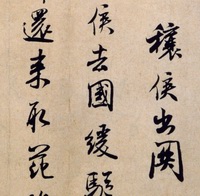 穰侯出關
侯去國緩驅
還来取范